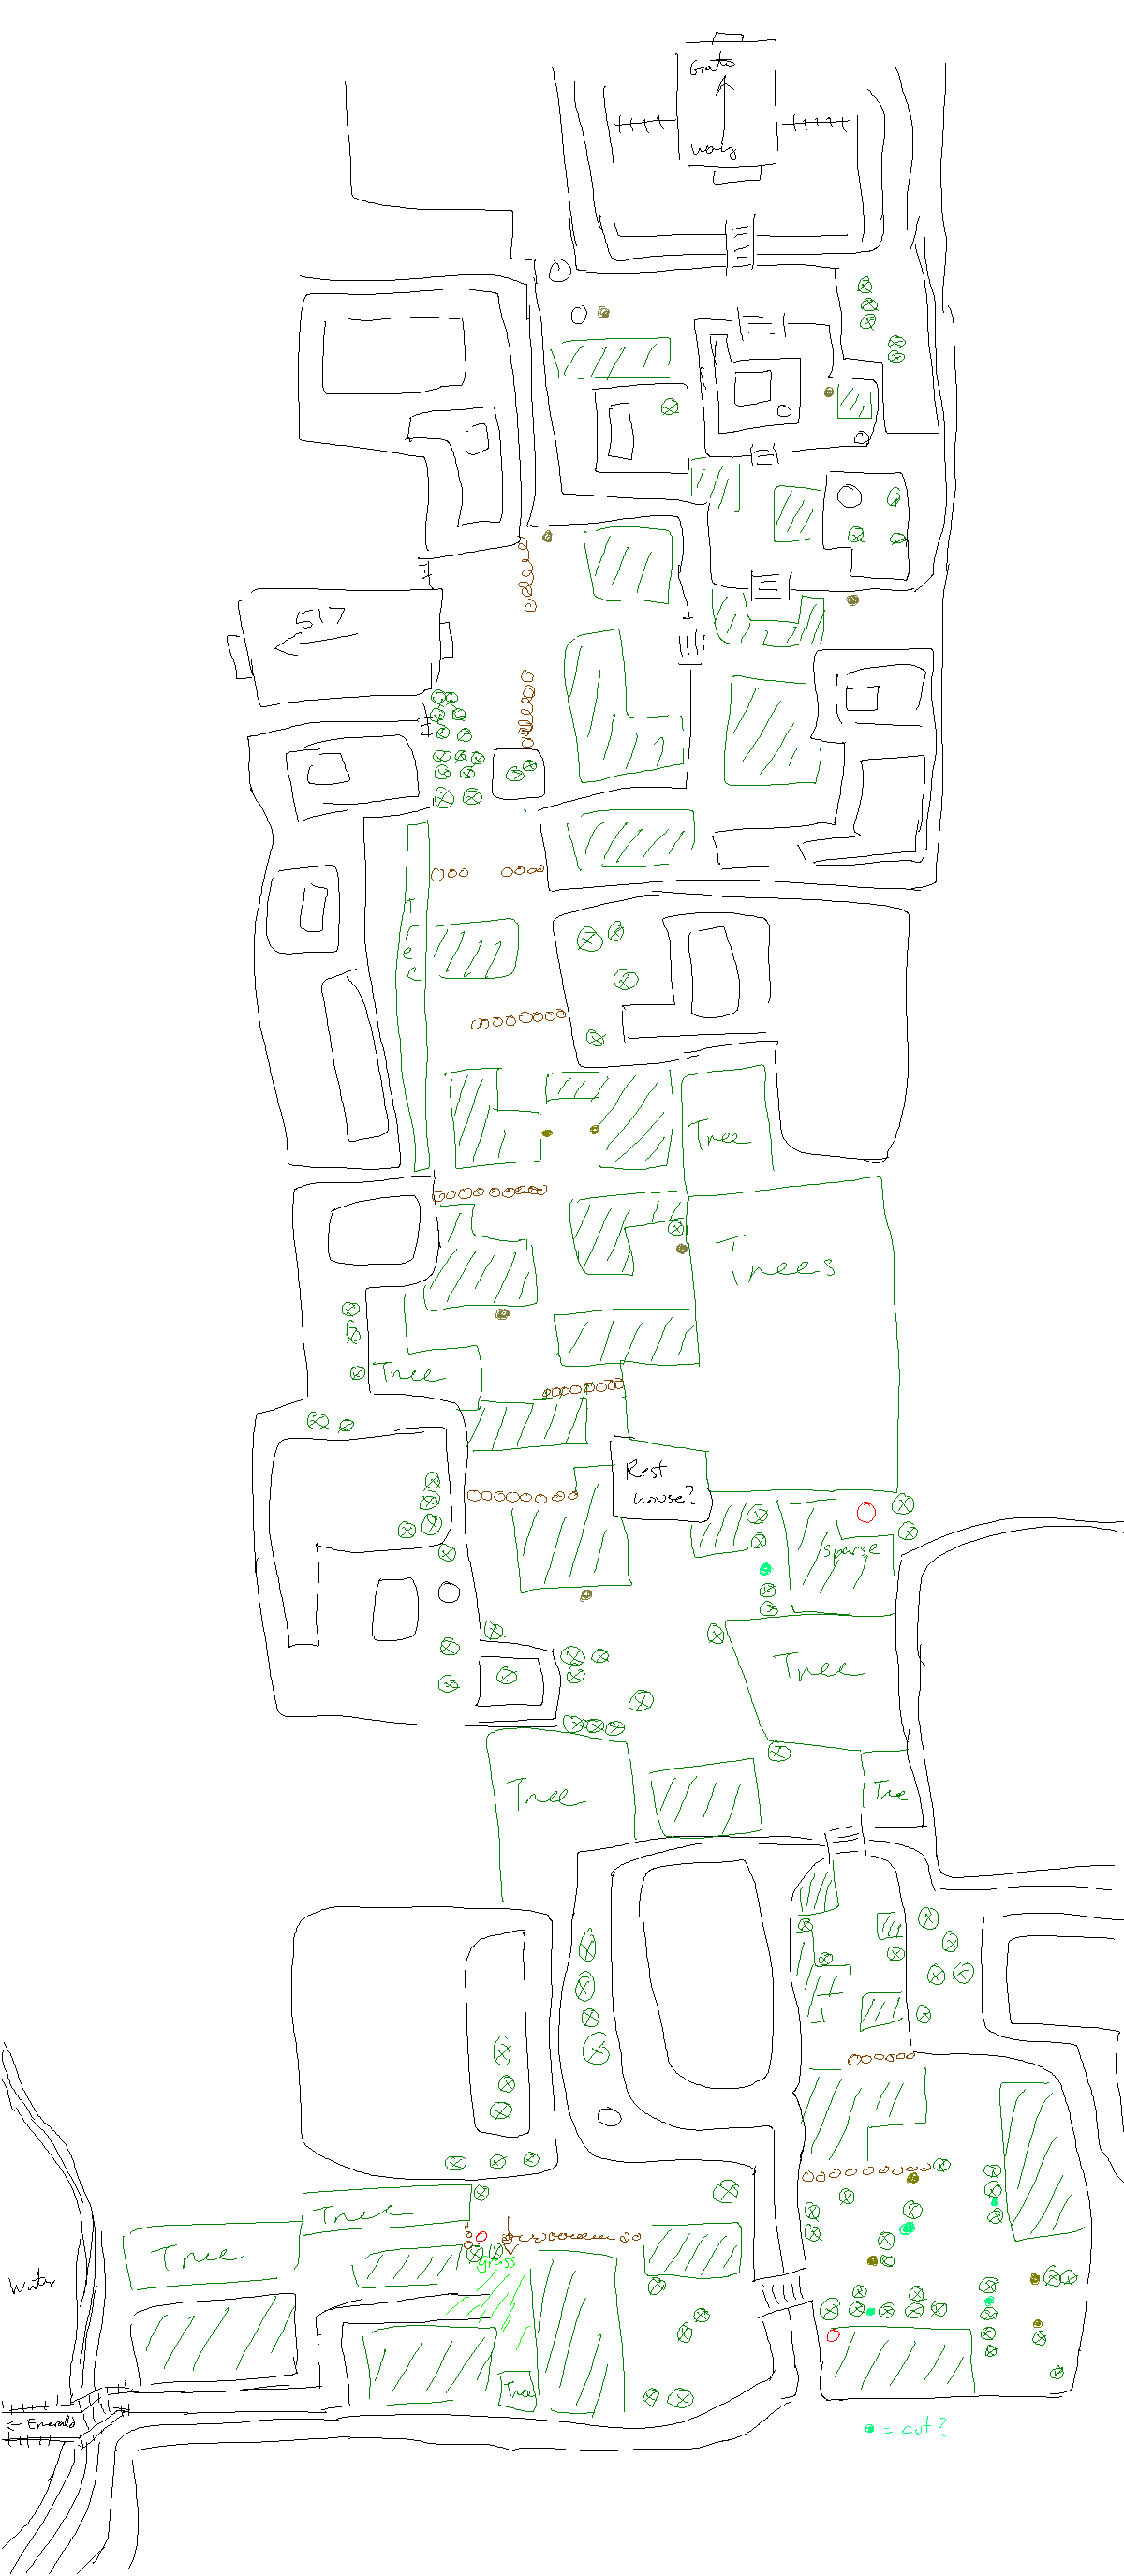 Gate
way
517
Tree
Tree
Trees
Tree
Rest
house?
sparse
Tree
Tree
Tree
Tree
Tree
Grass
Water
Tree
← Emerald
= cut?